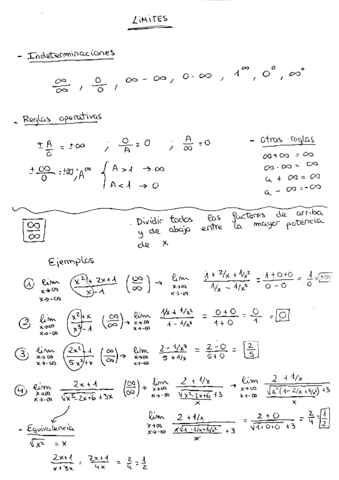 LÍMITES
- Indeterminaciones
∞/∞ , 0/0 , ∞ - ∞ , 0 · ∞ , 1^∞ , 0^0 , ∞^0
- Reglas operativas
± A/0 = ±∞ ; 0/A = 0 ; A/∞ = 0
± ∞/0 = ±∞ ; A^∞ { A > 1 → ∞
A < 1 → 0
- Otras reglas
∞ + ∞ = ∞
∞ · ∞ = ∞
a + ∞ = ∞
a - ∞ = -∞
∞/∞
. Dividir todos los factores de arriba
y de abajo entre la mayor potencia
de x
Ejemplos
① lim x→∞ x→-∞ (x² + 2x + 1)/(x - 1) (∞/∞) → lim x→∞ x→-∞ (1 + 2/x + 1/x²)/(1/x - 1/x²) = (1+0+0)/(0-0) = 1/0 = +∞
② lim x→∞ x→-∞ (x + x)/(x² - 1) (∞/∞) → lim x→∞ x→-∞ (1/x + 1/x²)/(1 - 1/x²) = (0+0)/(1+0) = 0/1 = 0
③ lim x→∞ x→-∞ (∞/∞) → lim x→∞ x→-∞ (2 - 1/x²)/(5 + 1/x) = (2-0)/(5+0) = 2/5
④ lim x→∞ x→-∞ (2x + 1)/(√x² - 2x + 6 + 3x) (∞/∞) → lim x→∞ x→-∞ (2 + 1/x)/(√x² - 2x + 6 / x + 3) → lim x→∞ x→-∞ (2 + 1/x)
lim x→∞ x→-∞ (2 + 1/x) = (2+0)/(√1+0+0 + 3) = 2/4 = 1/2
- Equivalencia
√x² = x
(2x+1)/(x+3x) = (2x+1)/4x = 2/4 = 1/2